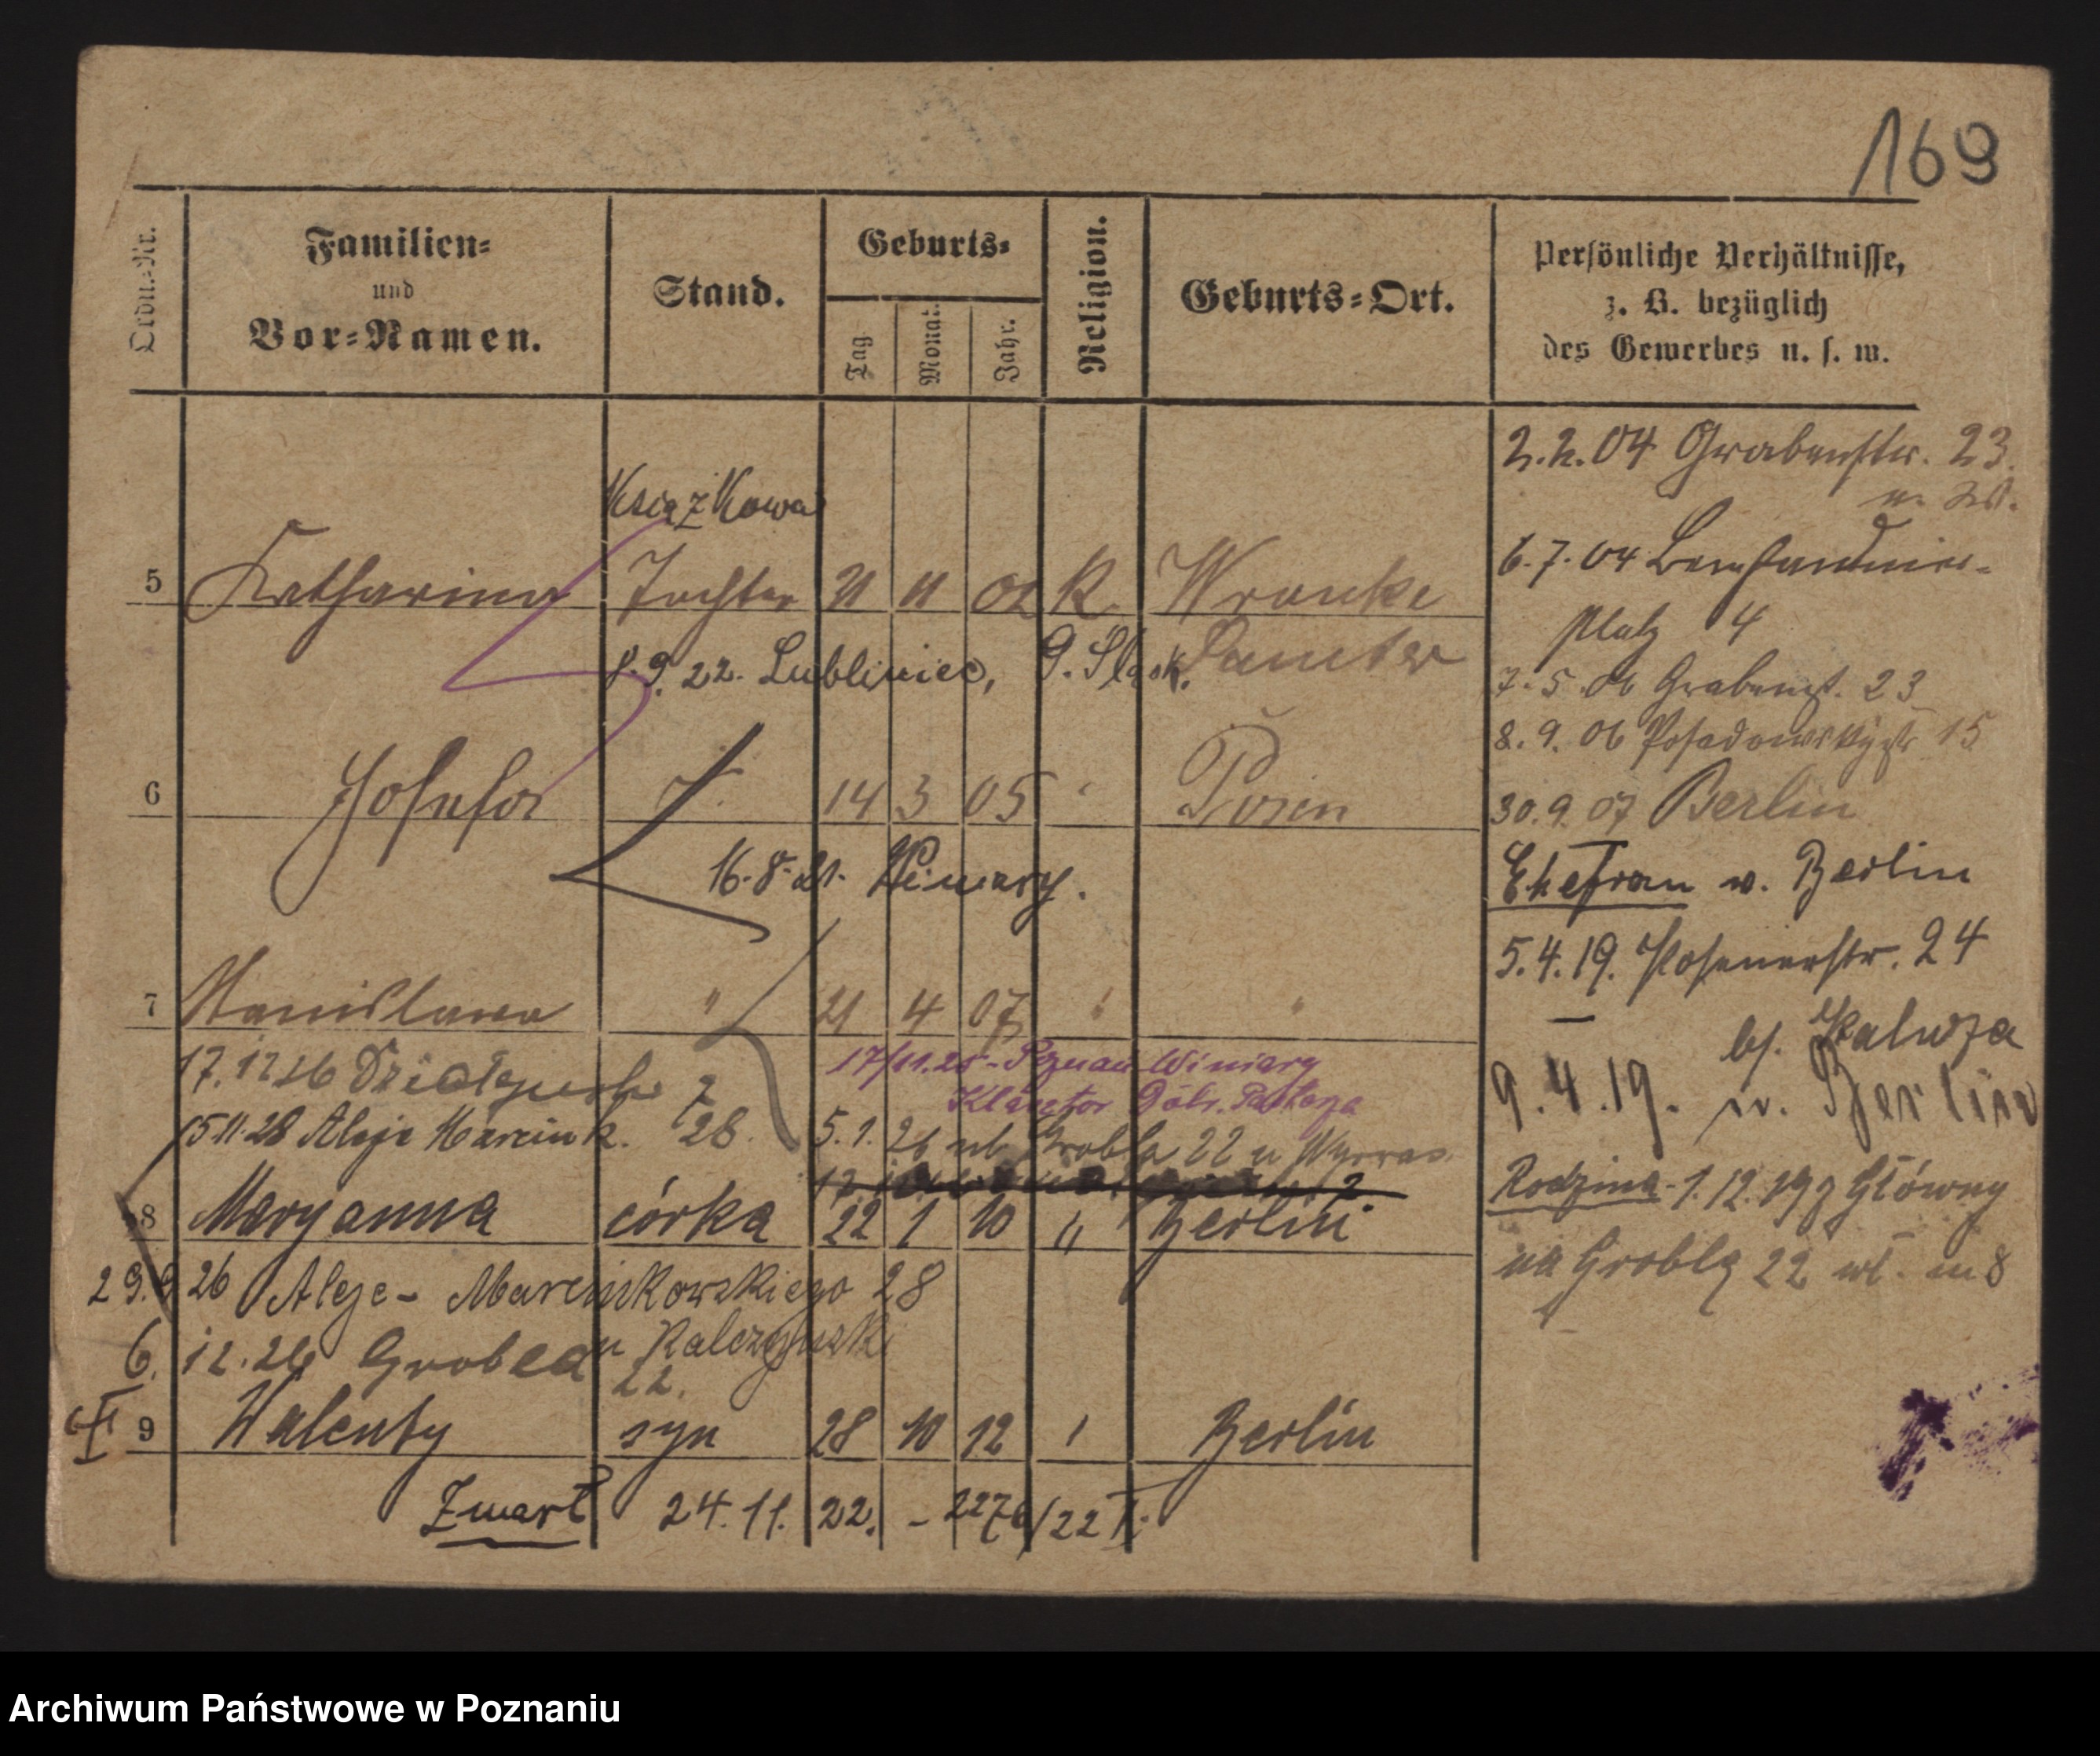 169
Ordn.-Nr.
Familien-
und
Vor-Namen.
Stand.
Geburts-
Tag
Monat.
Jahr.
Religion.
Geburts-Ort.
Persönliche Verhältnisse,
z. B. bezüglich
des Gewerbes u. s. w.
2.2.04 Grabenstr. 23.
Książkowa
5 Katharina Tochter 21 11 02 K Wronke
6.7.04 Bernhardiner-
Platz 4
8.9.22. Lubliniec, G. Śląsk. Samter
7.5.06 Grabenst. 23
8.9.06 Posadowskystr 15
6 Josefa T. 14 3 05 Posen
30.9.07 Berlin
16.8.21. Winiary.
Ehefrau v. Berlin
5.4.19. Posenerstr. 24
7 Stanislawa " 21 4 07 " "
bf. Kaluza
17.12 26 Działyńsk 2
17/11.25 - Poznań Winiary
Klasztor Dobr. Pasterza
9.4.19. v. Berlin
15.11.28 Aleje Marcink. 28.
5.1.26 ul. Grobla 22 u
Rodzina - 1.12.19 z Główny
8 Maryanna córka 22 1 10 " Berlin
na Groblę 22 m 8
29.9 26 Aleje - Marcinkowskiego 28
6. 12.26 Grobla u Kalczyński
22.
9 Walenty syn 28 10 12 Berlin
Zmarł 24.11.22. - 2276/22 I.
Archiwum Państwowe w Poznaniu